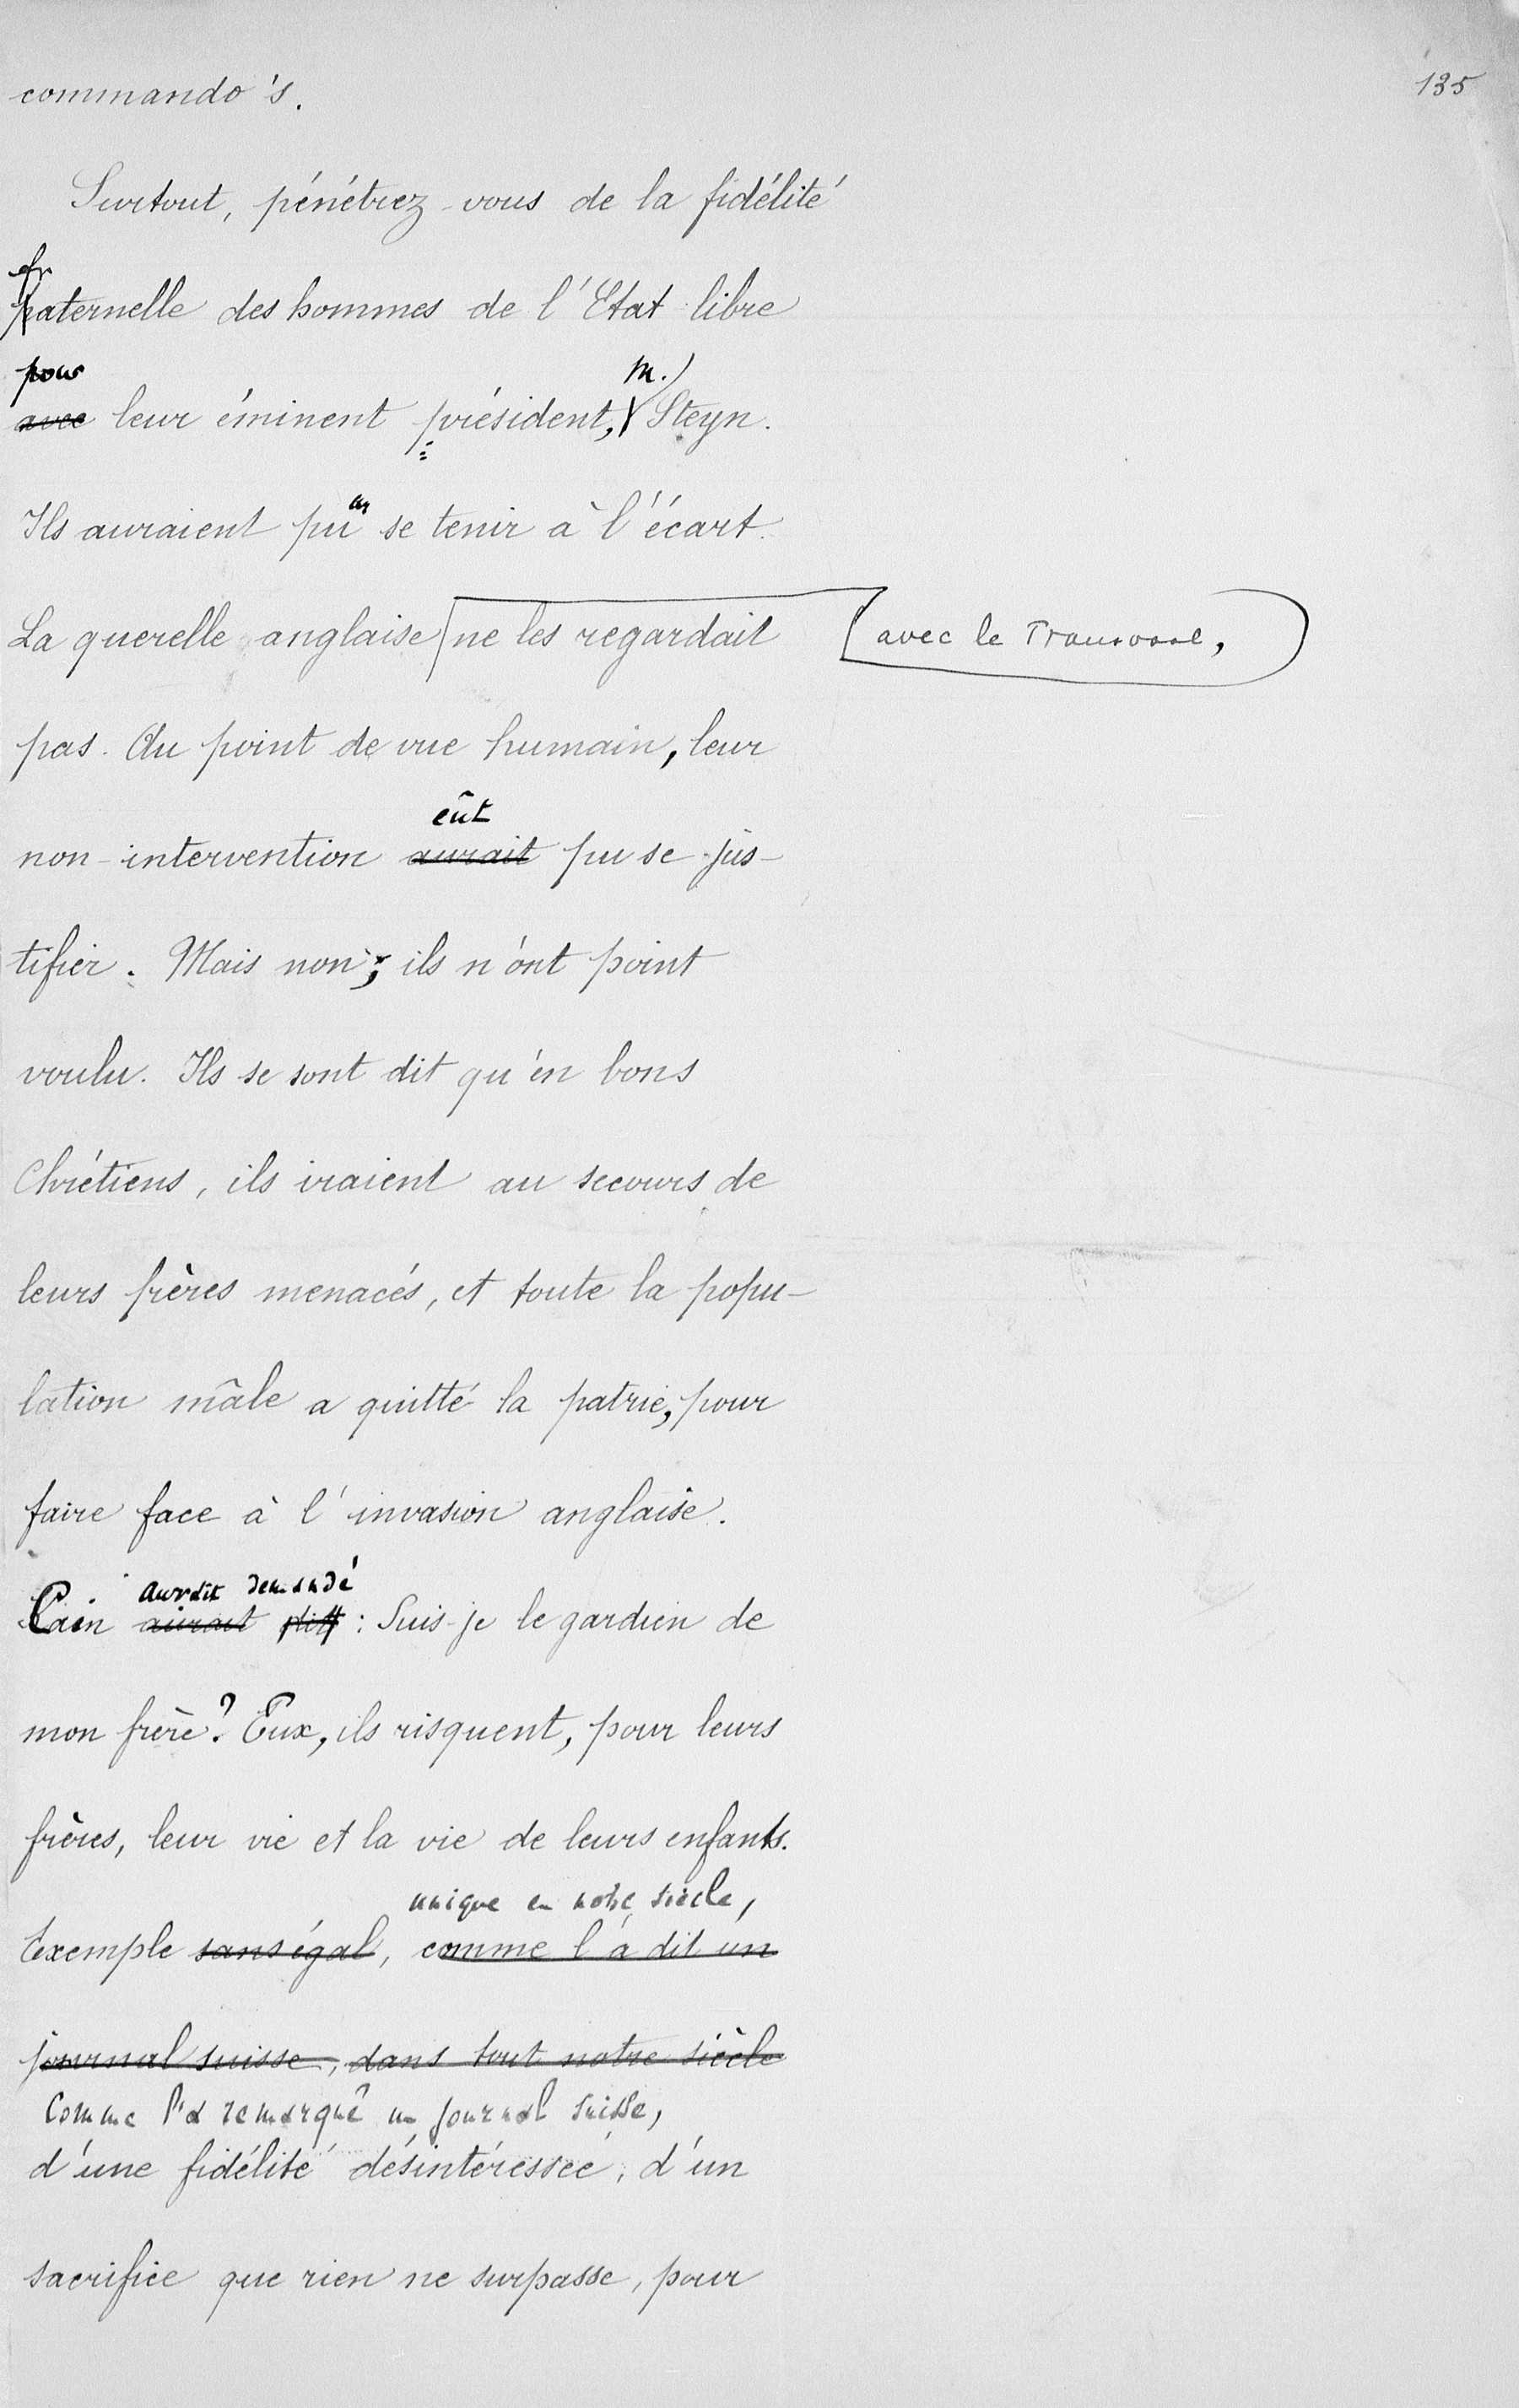 135
commando's.
Surtout, pénétrez-vous de la fidélité
fr
paternelle des hommes de l'Etat libre
pour M.
avec leur éminent président, Steyn.
Ils auraient pu se tenir à l'écart.
La querelle anglaise ne les regardait avec le Transvaal,
pas. Au point de vue humain, leur
eût
non-intervention aurait pu se jus-
tifier. Mais non; ils n'ont point
voulu. Ils se sont dit qu'en bons
Chrétiens, ils iraient au secours de
leurs frères menacés, et toute la popu-
lation mâle a quitté la patrie, pour
faire face à l'invasion anglaise.
aurait demandé
Caïn aurait dit : Suis-je le gardien de
mon frère? Eux, ils risquent, pour leurs
frères, leur vie et la vie de leurs enfants.
unique en notre siècle,
Exemple sans égal, comme l'a dit un
journal suisse, dans tout notre siècle
comme l'a remarqué un journal suisse,
d'une fidélité désintéressée, d'un
sacrifice que rien ne surpasse, pour